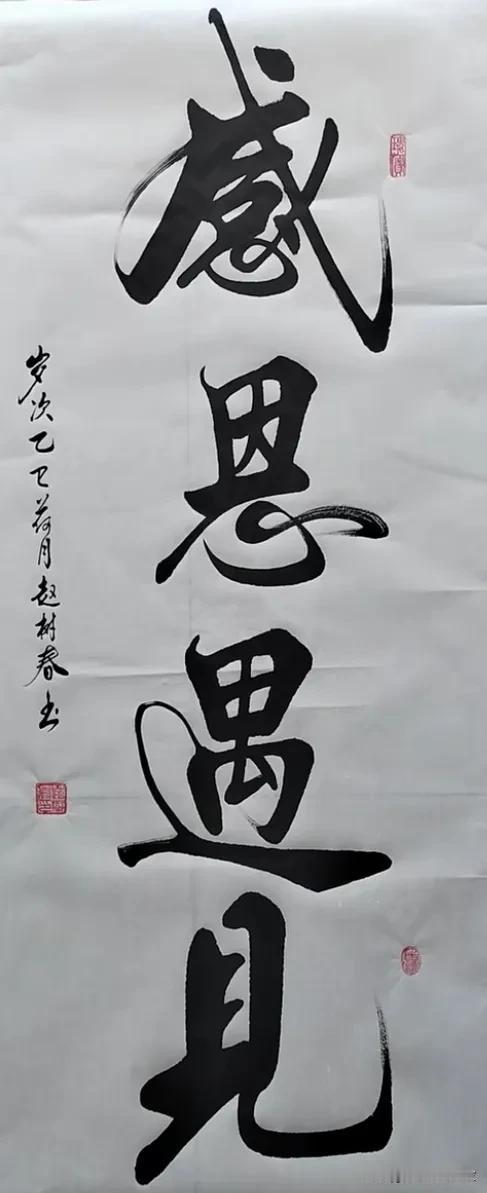 感恩遇见
岁次乙巳荷月赵树春书